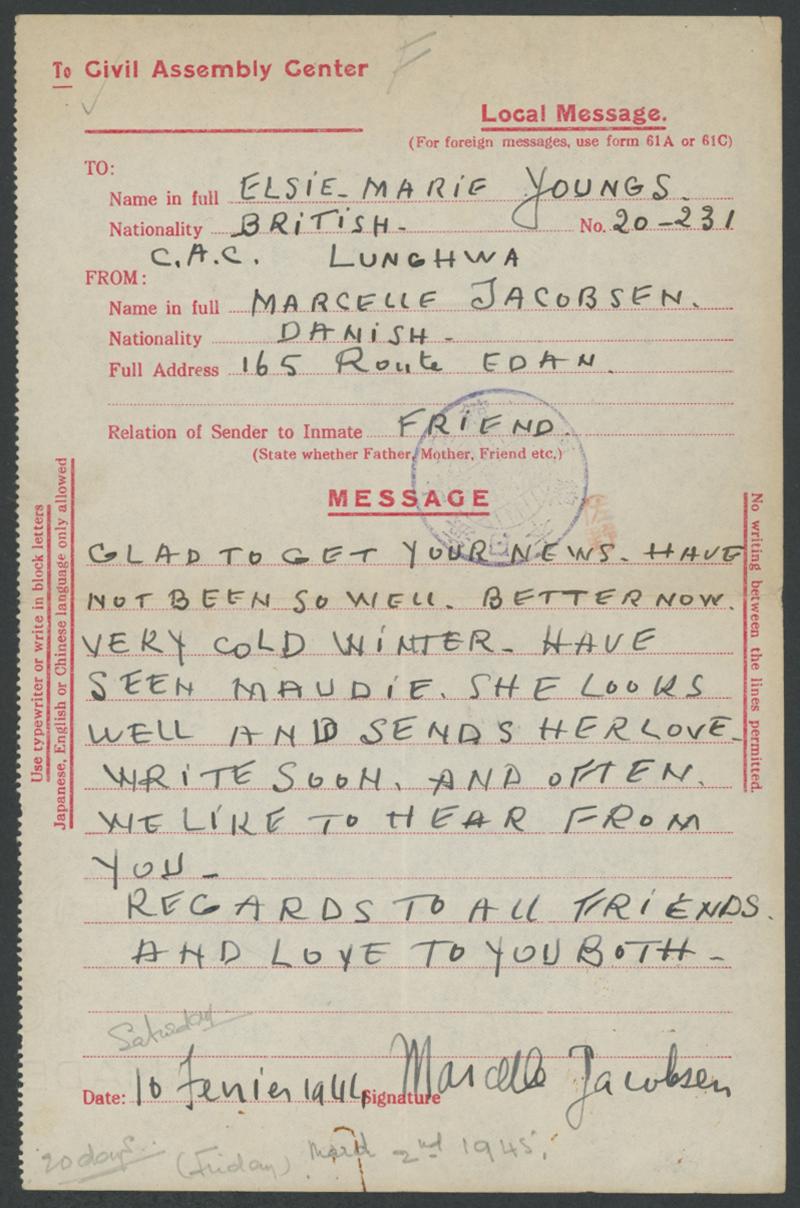 To Civil Assembly Center
Local Message.
(For foreign messages, use form 61A or 61C)
TO:
Name in full ELSIE-MARIE YOUNGS.
Nationality BRITISH- No. 20-231
C.A.C. LUNGHWA
FROM:
Name in full MARCELLE JACOBSEN.
Nationality DANISH-
Full Address 165 Route EDAN.
Relation of Sender to Inmate FRIEND.
(State whether Father, Mother, Friend etc.)
MESSAGE
GLAD TO GET YOUR NEWS. HAVE
NOT BEEN SO WELL. BETTER NOW.
VERY COLD WINTER- HAVE
SEEN MAUDIE. SHE LOOKS
WELL AND SENDS HER LOVE-
WRITE SOON. AND OFTEN.
WE LIKE TO HEAR FROM
YOU-
REGARDS TO ALL FRIENDS.
AND LOVE TO YOU BOTH-
Saturday
Date: 10 Fevrier 1944 Signature Marcelle Jacobsen
20 days. (Friday) March 2nd 1945.
Use typewriter or write in block letters
Japanese, English or Chinese language only allowed
No writing between the lines permitted.